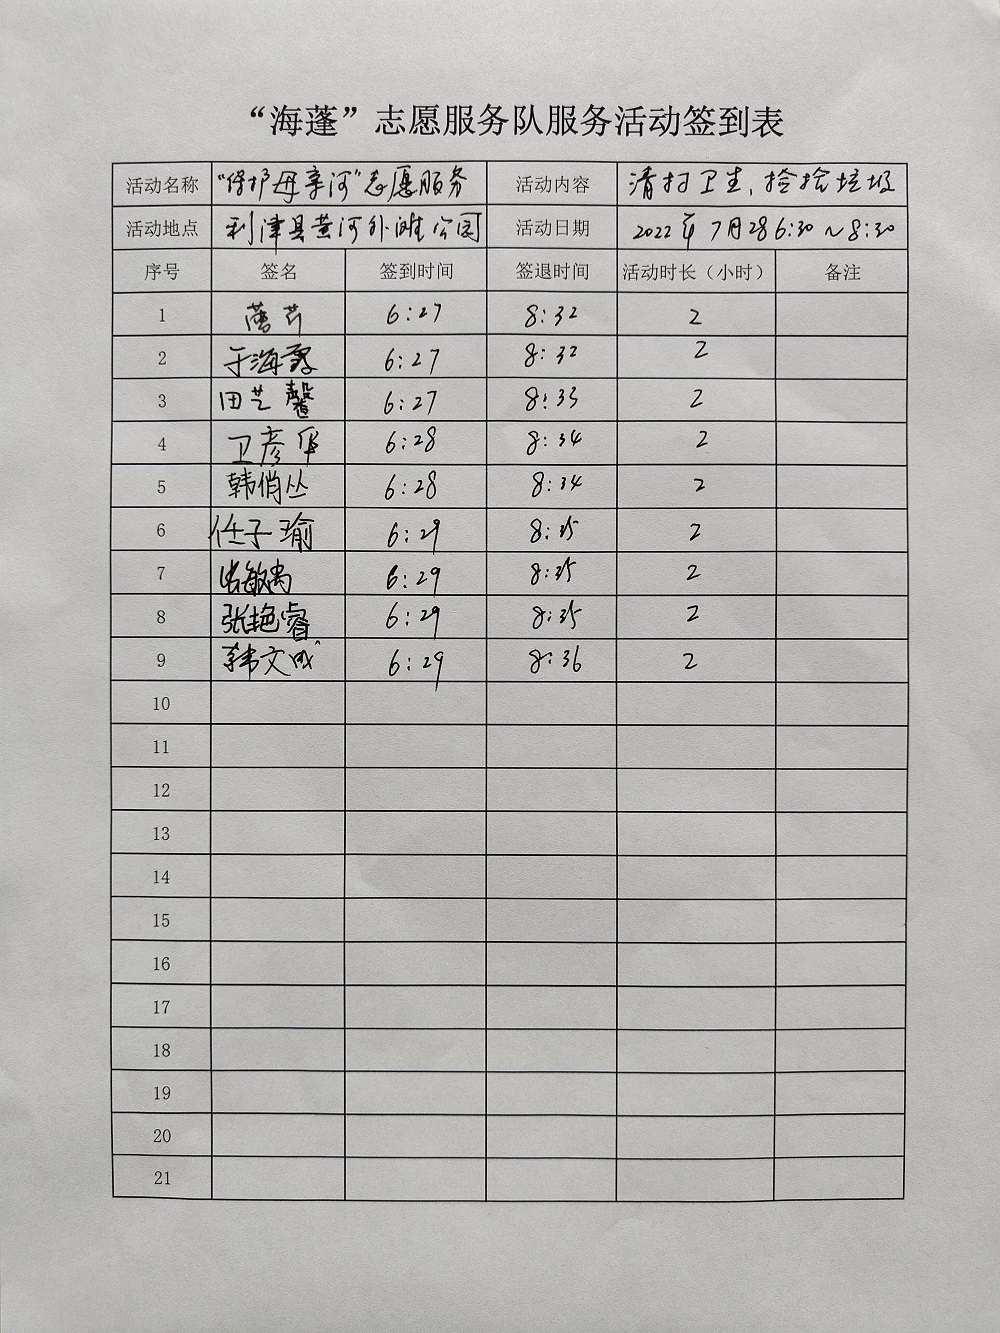 “海蓬”志愿服务队服务活动签到表
活动名称 “保护母亲河”志愿服务 活动内容 清扫卫生、捡拾垃圾
活动地点 利津县黄河外滩公园 活动日期 2022年7月28 6:30～8:30
序号 签名 签到时间 签退时间 活动时长（小时） 备注
1 6:27 8:32 2
2 于海霞 6:27 8:32 2
3 田芝馨 6:27 8:33 2
4 卫彦华 6:28 8:34 2
5 韩俏丛 6:28 8:34 2
6 任子瑜 6:29 8:35 2
7 6:29 8:35 2
8 张艳睿 6:29 8:35 2
9 韩文成 6:29 8:36 2
10
11
12
13
14
15
16
17
18
19
20
21